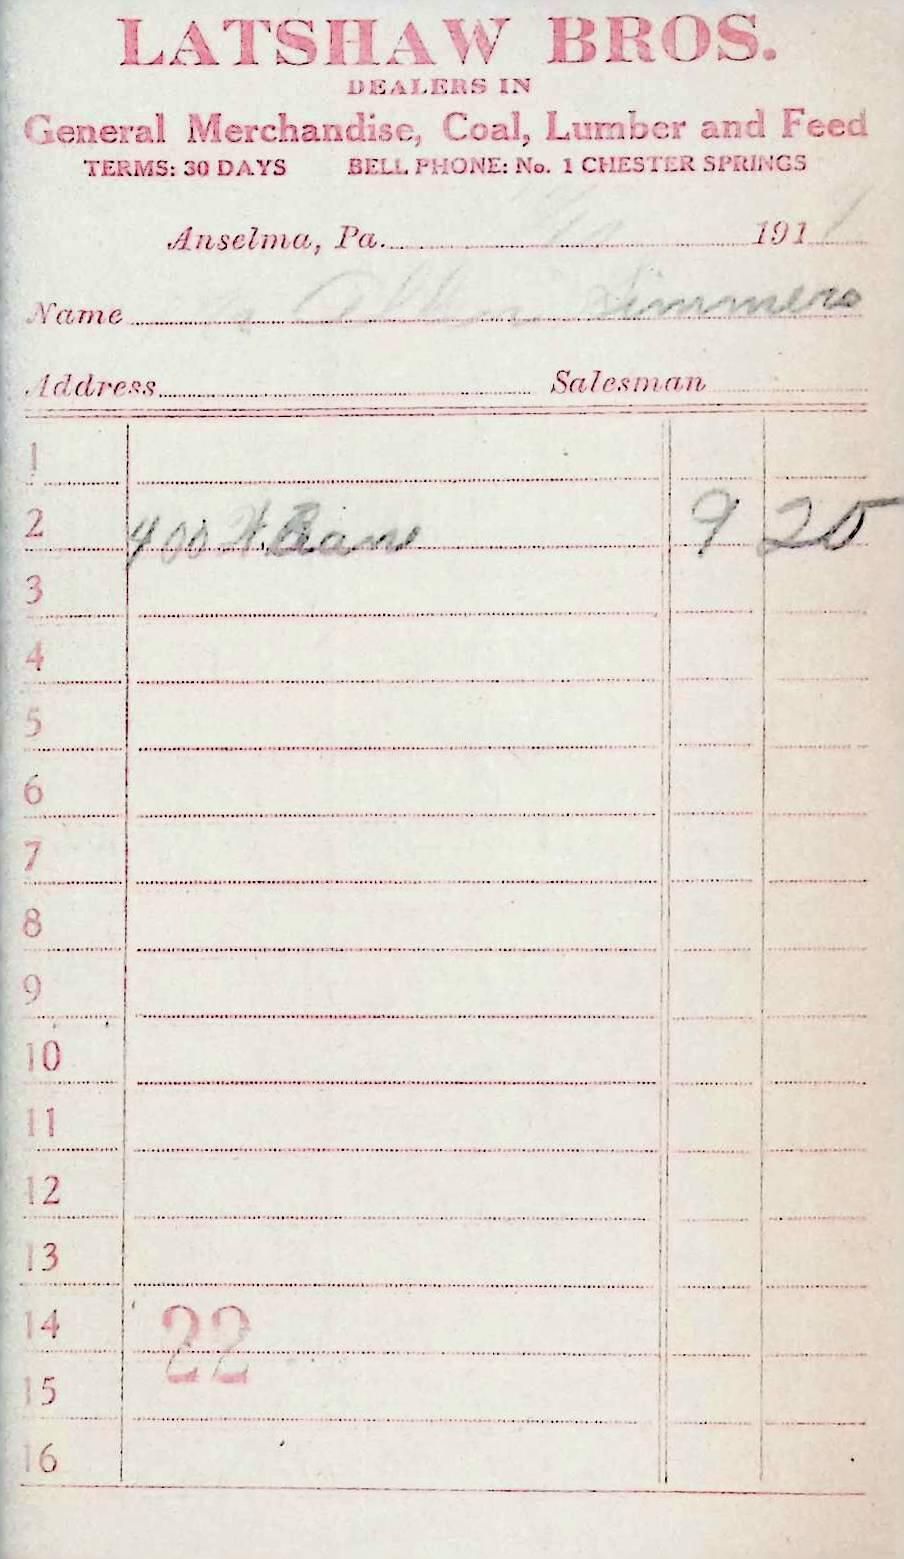 LATSHAW BROS.
DEALERS IN
General Merchandise, Coal, Lumber and Feed
TERMS: 30 DAYS BELL PHONE: No. 1 CHESTER SPRINGS
Anselma, Pa. 191
Name Allen Simmers
Address Salesman
1
2 400 # 9 20
3
4
5
6
7
8
9
10
11
12
13
14
22
15
16